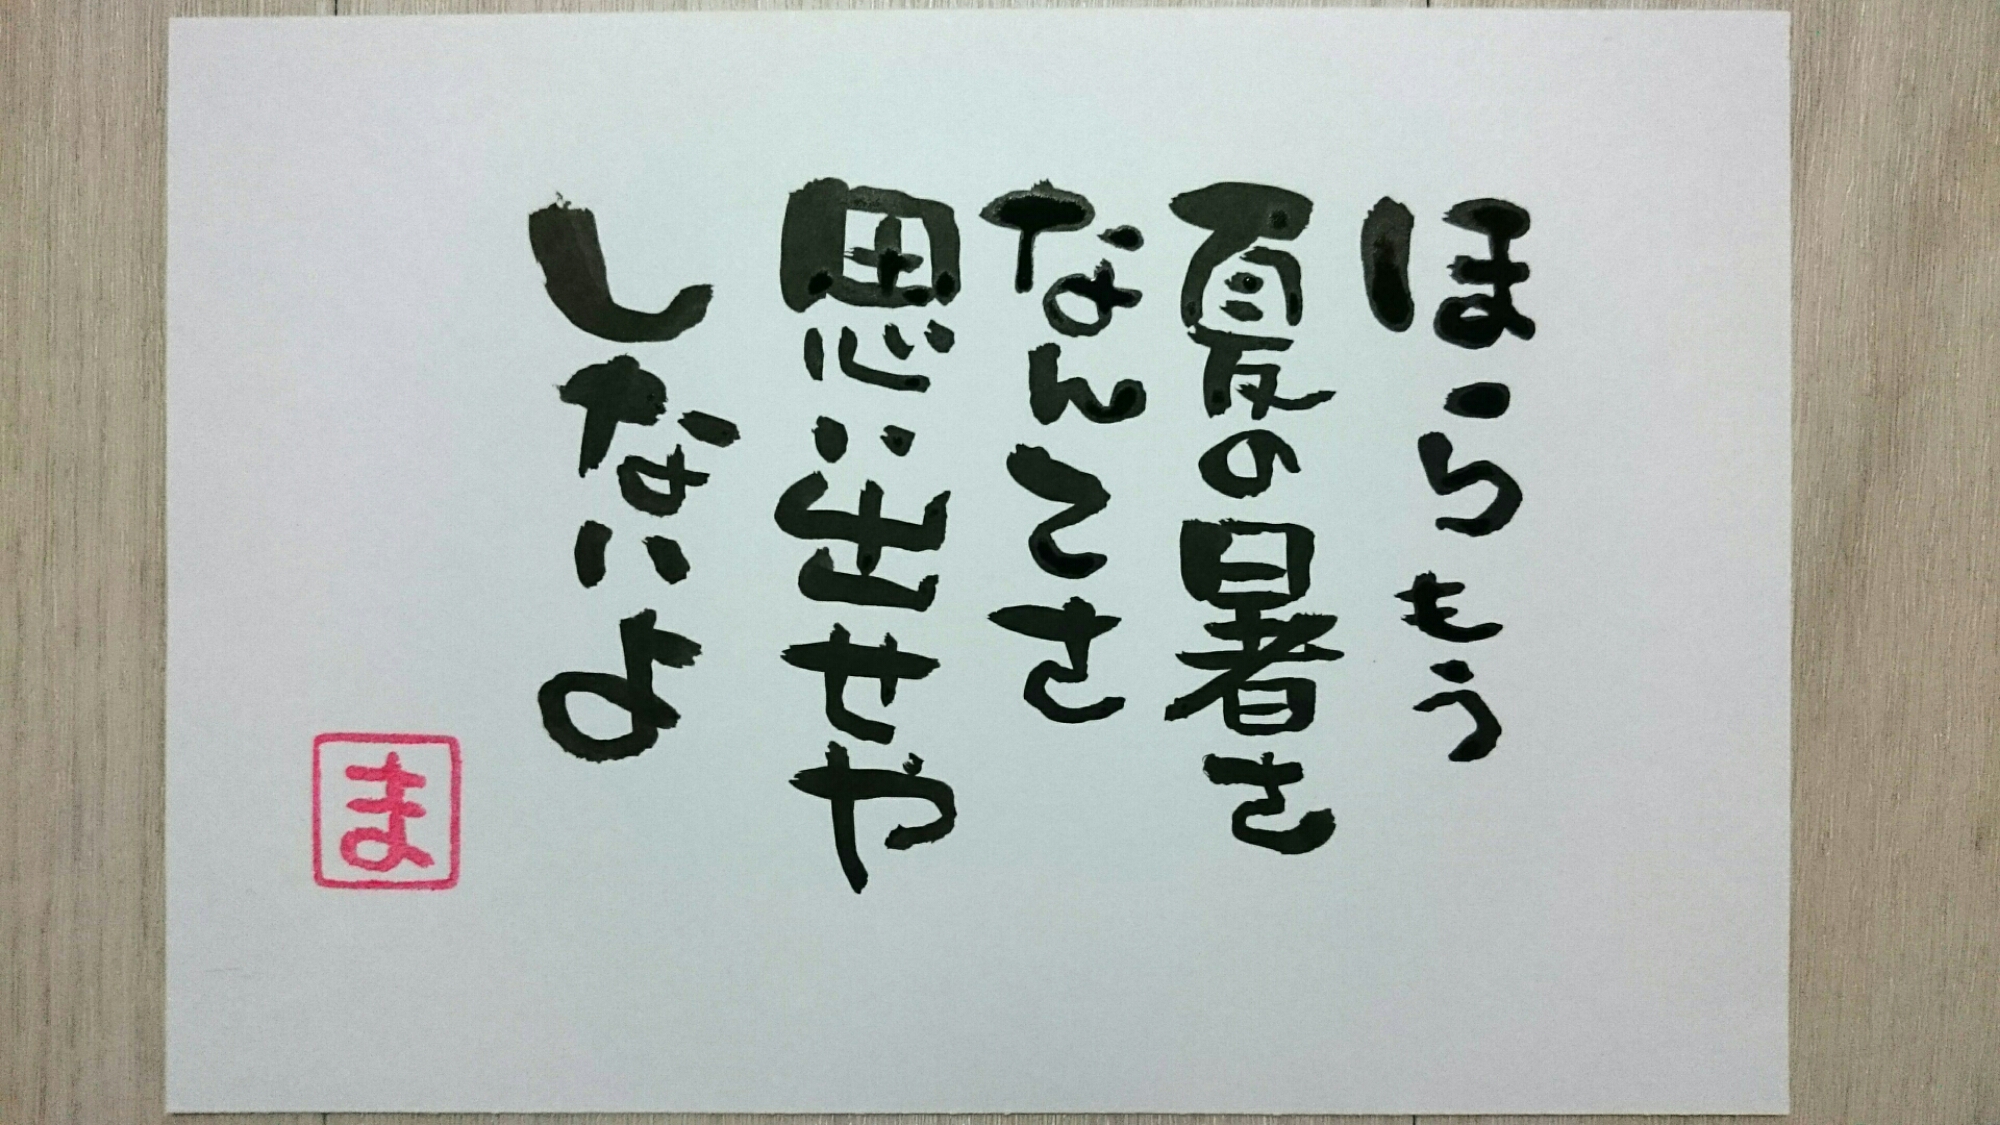 ほらもう
夏の暑さ
なんてさ
思い出せや
しないよ
ま